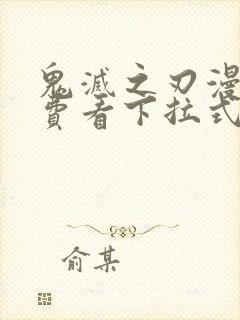 鬼滅之刃漫
費看下拉式
俞某